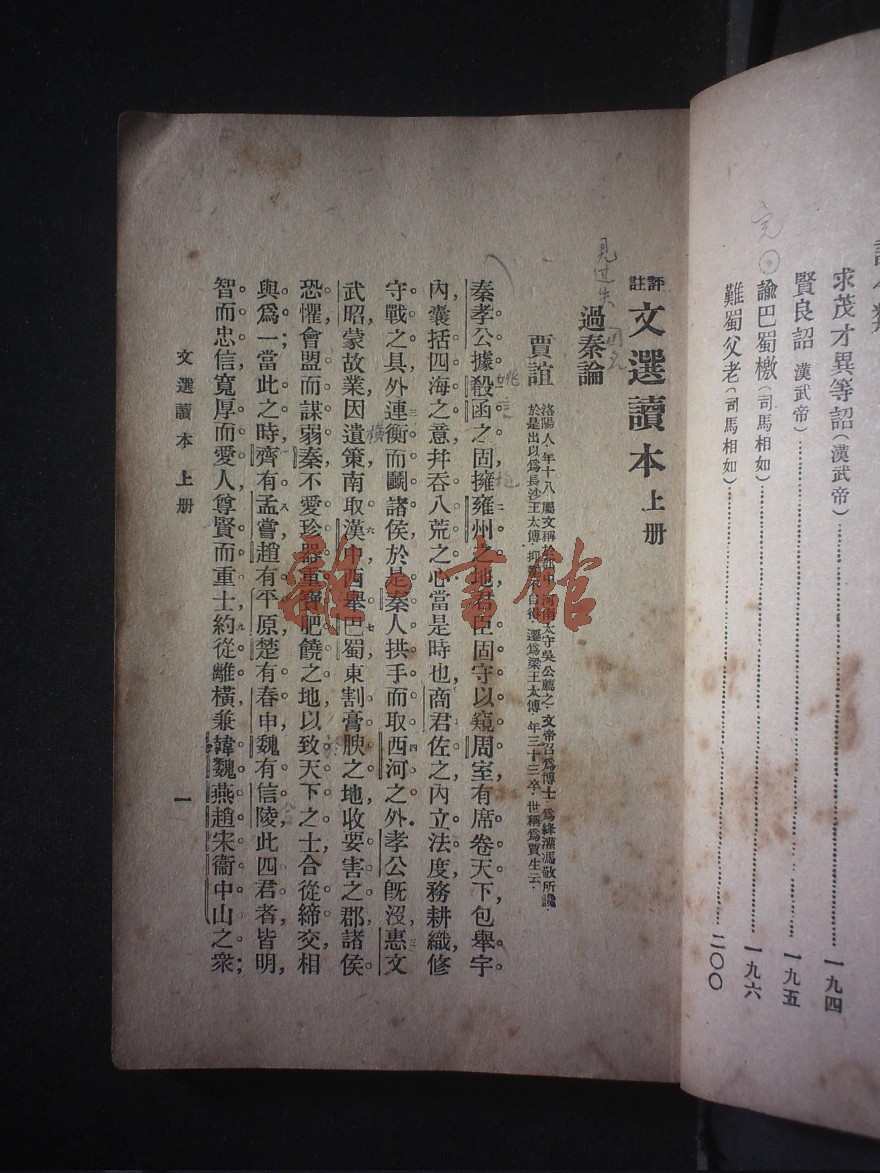 求茂才異等詔（漢武帝）……一九四
賢良詔 漢武帝）……一九五
諭巴蜀檄（司馬相如）……一九六
難蜀父老（司馬相如）……二〇〇
完
評註 文選讀本 上册
見过失
過秦論
賈誼
洛陽人，年十八，屬文稱於郡中，河南太守吳公薦之，文帝召爲博士，爲絳灌馮敬所讒
於是出以爲長沙王太傅，抑鬱不自得，遷爲梁王太傅，年三十三卒，世稱爲賈生云，
秦孝公據殽函之固，擁雍州之地，君臣固守以窺周室，有席卷天下，包舉宇
內，囊括四海之意，幷吞八荒之心。當是時也，商君佐之，內立法度，務耕織，修
守戰之具，外連衡而鬭諸侯，於是秦人拱手而取西河之外。孝公旣沒，惠文
武昭蒙故業，因遺策，南取漢中，西舉巴蜀，東割膏腴之地，收要害之郡。諸侯
恐懼，會盟而謀弱秦，不愛珍器重寶肥饒之地，以致天下之士，合從締交，相
與爲一；當此之時，齊有孟嘗，趙有平原，楚有春申，魏有信陵，此四君者，皆明
智而忠信，寬厚而愛人，尊賢而重士，約從離橫，兼韓魏燕趙宋衞中山之衆；
橫
文選讀本 上册
一
雜·書館